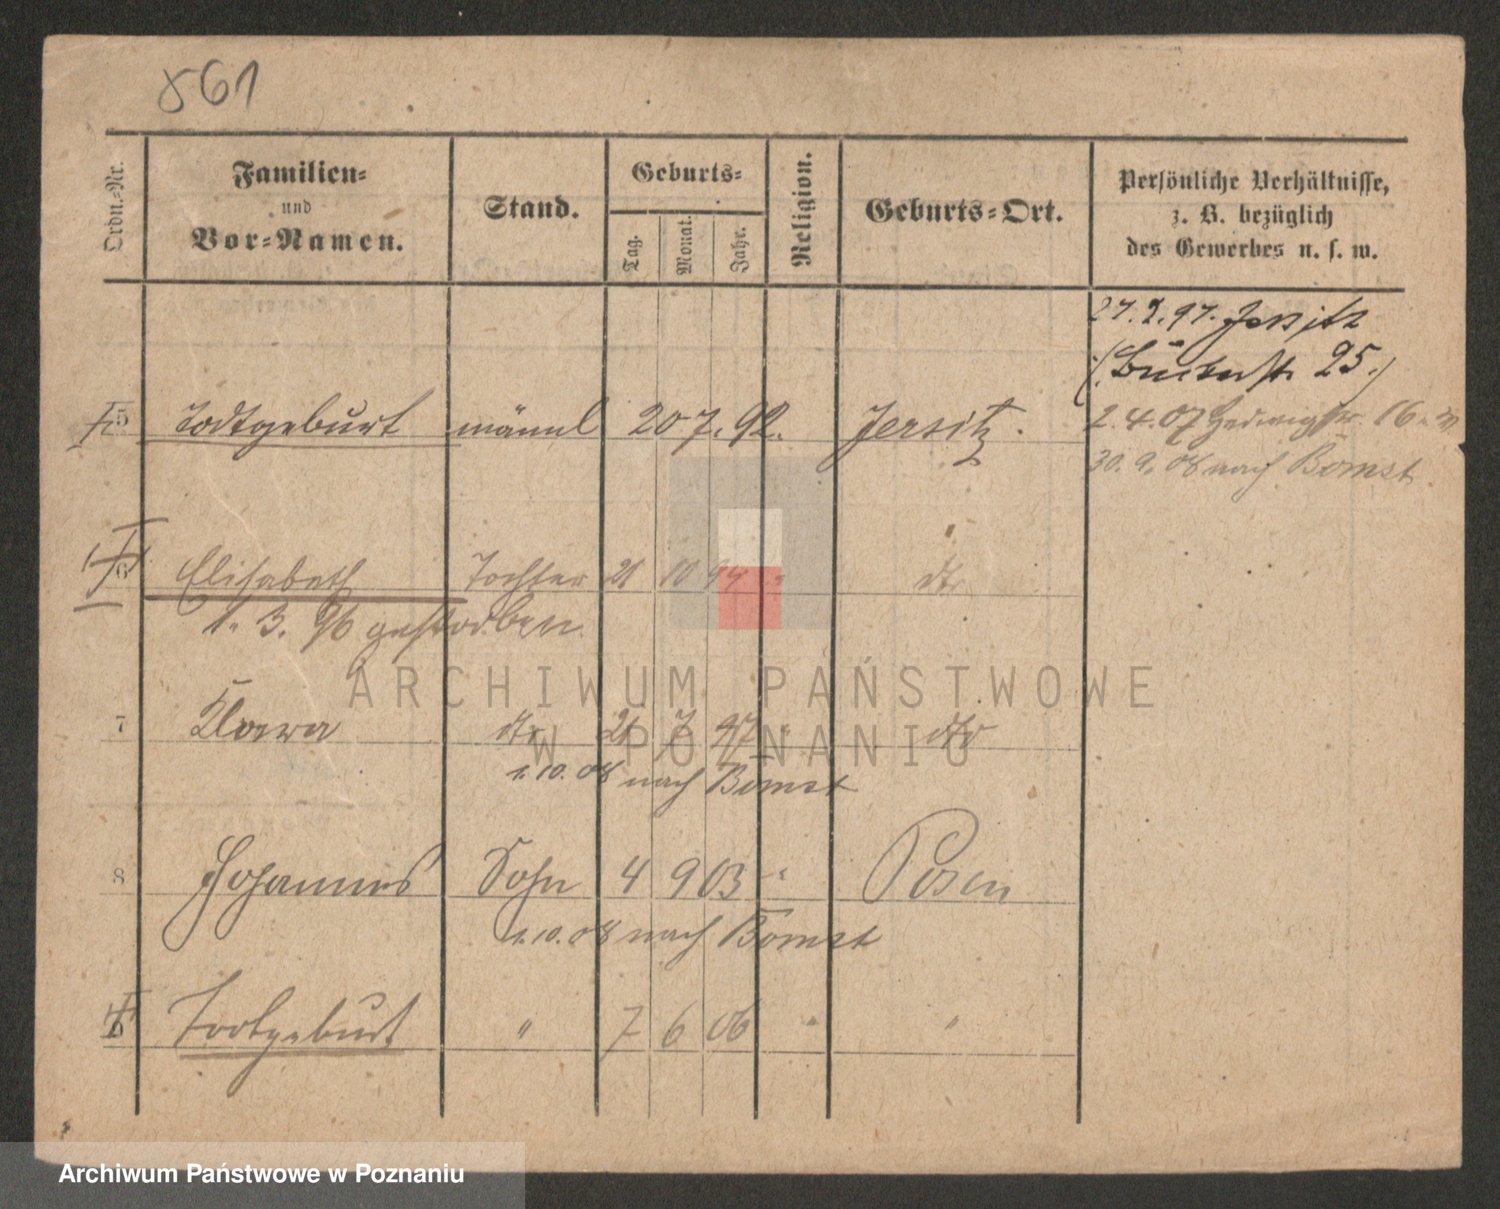 861
Ordn.-Nr.
Familien-
und
Vor-Namen.
Stand.
Geburts-
Tag.
Monat.
Jahr.
Religion.
Geburts-Ort.
Persönliche Verhältnisse,
z. B. bezüglich
des Gewerbes u. s. w.
27.2.97. Jersitz
25.)
5 Todtgeburt männl 20 7. 92. Jersitz.
2.4.07 Hedwigstr. 16
30.9.08 nach Bomst
6 Elisabeth Tochter 21 10 94 " dto
1. 3. 96 gestorben
7 Klara dto 21 7 97 " dto
1.10.08 nach Bomst
8 Johannes Sohn 4 9 03 " Posen
1.10.08 nach Bomst
Todtgeburt " 7 6 06 " "
ARCHIWUM PAŃSTWOWE
W POZNANIU
Archiwum Państwowe w Poznaniu